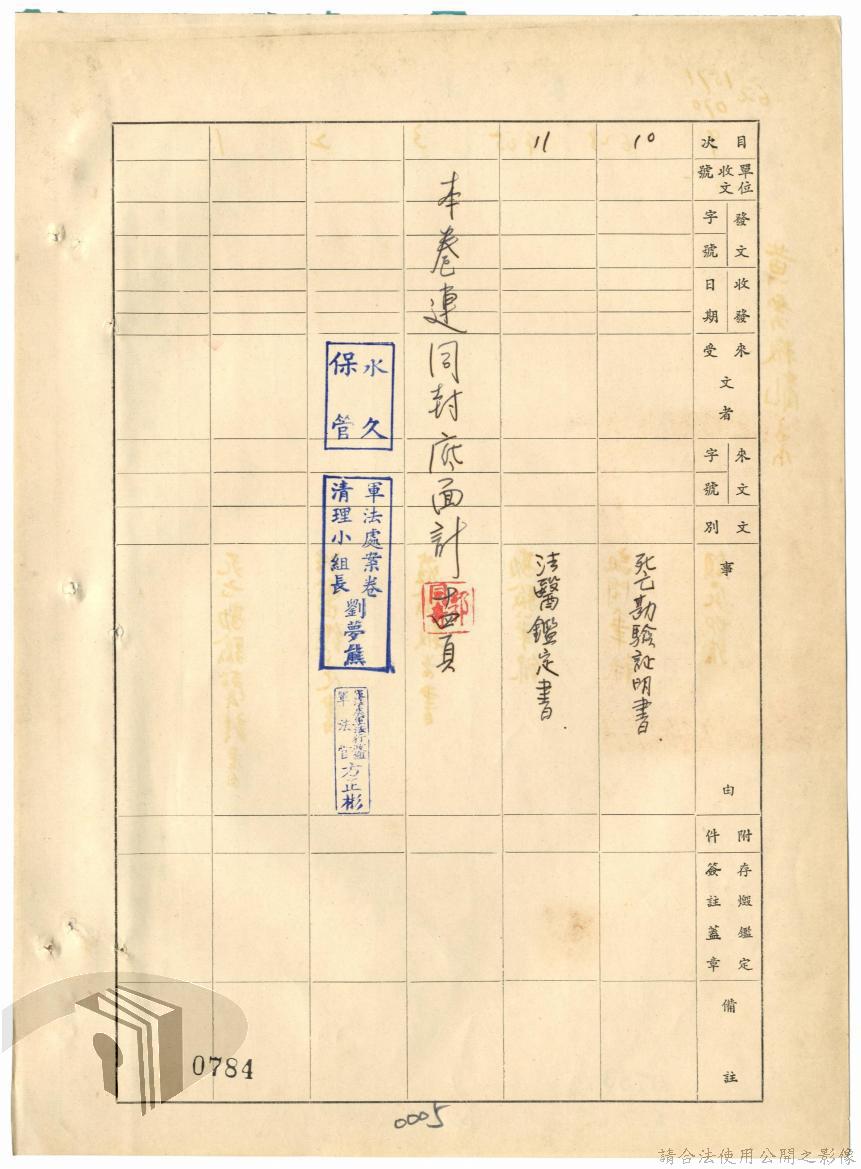 目次
單位收文號
發文字號
收發日期
來受文者
來文字號
文別
事由
附件
存燬鑑定簽註蓋章
備註
10
死亡勘驗証明書.
11
法醫鑑定書.
本卷連同封底面計十四頁
永久保管
軍法處案卷清理小組長劉夢熊
軍法官方正彬
0784
0005
請合法使用公開之影像